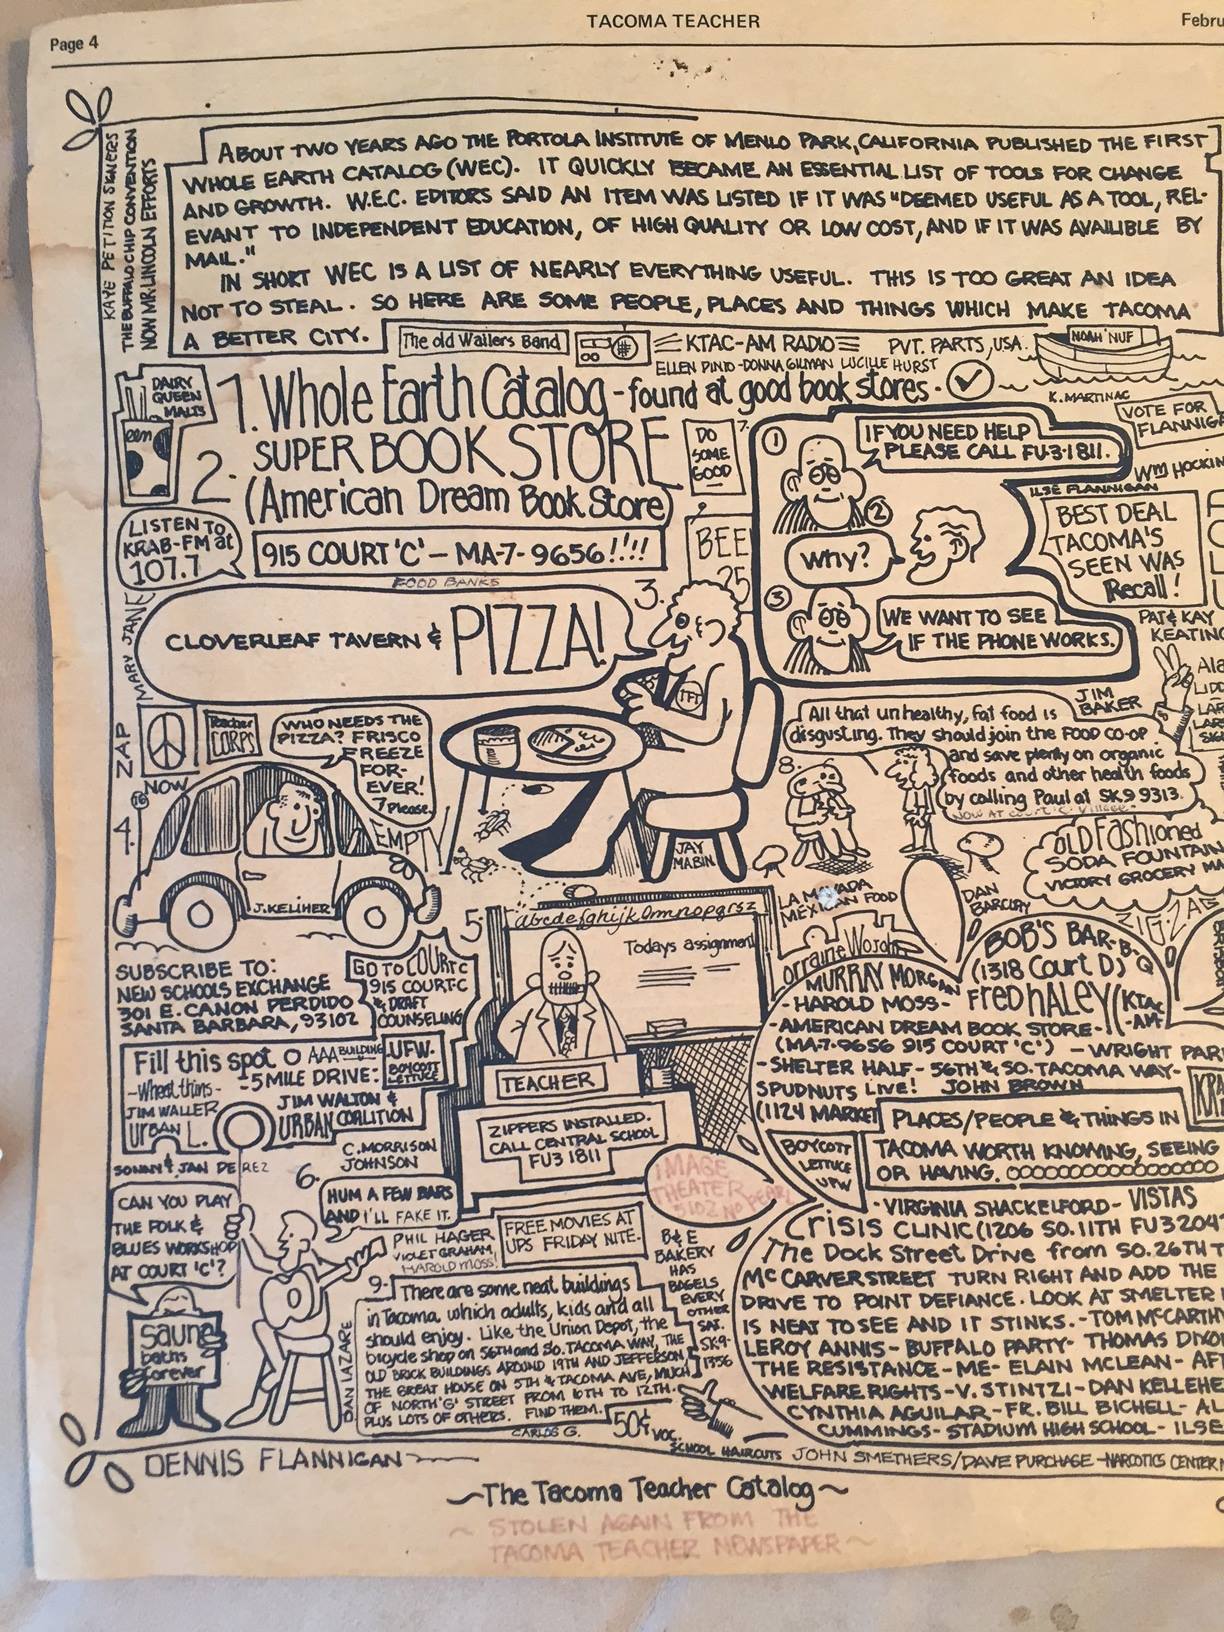 Page 4
TACOMA TEACHER
Febru
KAYE PETITION SIGNERS
THE BUFFALO CHIP CONVENTION
NOW MR. LINCOLN EFFORTS
ABOUT TWO YEARS AGO THE PORTOLA INSTITUTE OF MENLO PARK, CALIFORNIA PUBLISHED THE FIRST
WHOLE EARTH CATALOG (WEC). IT QUICKLY BECAME AN ESSENTIAL LIST OF TOOLS FOR CHANGE
AND GROWTH. W.E.C. EDITORS SAID AN ITEM WAS LISTED IF IT WAS "DEEMED USEFUL AS A TOOL, REL-
EVANT TO INDEPENDENT EDUCATION, OF HIGH QUALITY OR LOW COST, AND IF IT WAS AVAILIBLE BY
MAIL."
IN SHORT WEC IS A LIST OF NEARLY EVERYTHING USEFUL. THIS IS TOO GREAT AN IDEA
NOT TO STEAL. SO HERE ARE SOME PEOPLE, PLACES AND THINGS WHICH MAKE TACOMA
A BETTER CITY.
The old Wailers Band
KTAC-AM RADIO
PVT. PARTS, USA.
NOAH 'NUF
ELLEN PINTO-DONNA GILMAN LUCILLE HURST
K. MARTINAC
DAIRY
QUEEN
MALTS
een
1. Whole Earth Catalog - found at good book stores.
2. SUPER BOOK STORE
(American Dream Book Store)
915 COURT 'C' - MA-7-9656!!!!
FOOD BANKS
DO
SOME
GOOD
7.
BEE
25
1
IF YOU NEED HELP
PLEASE CALL FU-3-1811.
2
Why?
3
WE WANT TO SEE
IF THE PHONE WORKS.
VOTE FOR
FLANNIGA
WM HOCKIN
ILSE FLANNIGAN
BEST DEAL
TACOMA'S
SEEN WAS
Recall!
PAT & KAY
KEATING
LISTEN TO
KRAB-FM at
107.7
MARY JANE
ZAP
3.
CLOVERLEAF TAVERN & PIZZA!
TFT
JAY
MABIN
NOW
Teacher
CORPS
WHO NEEDS THE
PIZZA? FRISCO
FREEZE
FOR-
EVER!
7 Please.
4.
16
EMPTY
J. KELIHER
JIM
BAKER
All that unhealthy, fat food is
disgusting. They should join the FOOD CO-OP
and save plenty on organic
foods and other health foods
by calling Paul at SK9 9313.
NOW AT COURT 'C' Village
8.
OLD FASHIONED
SODA FOUNTAIN
VICTORY GROCERY MA
DAN
BARCLAY
ZIG-ZAG
LA MOVADA
MEXICAN FOOD
Lorraine Wojohn
5.
abcdefghijklmnopqrsz
Todays assignment
TEACHER
ZIPPERS INSTALLED.
CALL CENTRAL SCHOOL
FU3 1811
SUBSCRIBE TO:
NEW SCHOOLS EXCHANGE
301 E. CANON PERDIDO
SANTA BARBARA, 93102
GO TO COURT C
915 COURT-C
& DRAFT
COUNSELING
Fill this spot O
-Wheat thins-
JIM WALLER
URBAN L.
AAA BUILDING
-5 MILE DRIVE:
UFW.
BOYCOTT
LETTUCE
JIM WALTON &
URBAN COALITION
C. MORRISON
JOHNSON
SONNY & JAN DE REZ
CAN YOU PLAY
THE FOLK &
BLUES WORKSHOP
AT COURT 'C'?
6.
HUM A FEW BARS
AND I'LL FAKE IT.
PHIL HAGER
VIOLET GRAHAM,
HAROLD MOSS!
FREE MOVIES AT
UPS FRIDAY NITE.
Sauna
baths
forever
DAN LAZARE
9.
There are some neat buildings
in Tacoma which adults, kids and all
should enjoy. Like the Union Depot, the
bicycle shop on 56TH and So. TACOMA WAY, THE
OLD BRICK BUILDINGS AROUND 19TH AND JEFFERSON,
THE GREAT HOUSE ON 5TH & TACOMA AVE, MUCH
OF NORTH 'G' STREET FROM 10TH TO 12TH.
PLUS LOTS OF OTHERS. FIND THEM.
CARLOS G.
IMAGE
THEATER
5102 NO PEARL
B & E
BAKERY
HAS
BAGELS
EVERY
OTHER
SAT.
SK9-
1356
50¢ VOC.
SCHOOL HAIRCUTS
BOB'S BAR-B-Q
(1318 Court D)
MURRAY MORGAN
-HAROLD MOSS-
FRED HALEY (KTAC
-AM-
-AMERICAN DREAM BOOK STORE-
(MA-7-9656 915 COURT 'C') - WRIGHT PAR
-SHELTER HALF - 56TH & SO. TACOMA WAY-
SPUDNUTS LIVE! JOHN BROWN
(1124 MARKET
KRA
PLACES/PEOPLE & THINGS IN
TACOMA WORTH KNOWING, SEEING
OR HAVING.
BOYCOTT
LETTUCE
UFW
-VIRGINIA SHACKELFORD- VISTAS
CRISIS CLINIC (1206 SO. 11TH FU3204
The Dock Street Drive from SO. 26TH T
MCCARVER STREET TURN RIGHT AND ADD THE
DRIVE TO POINT DEFIANCE. LOOK AT SMELTER
IS NEAT TO SEE AND IT STINKS. - TOM MCCARTH
LEROY ANNIS- BUFFALO PARTY- THOMAS DIXO
THE RESISTANCE - ME- ELAIN MCLEAN - AF
WELFARE RIGHTS - V. STINTZI - DAN KELLEHE
CYNTHIA AGUILAR - FR. BILL BICHELL - AL
CUMMINGS- STADIUM HIGH SCHOOL - ILSE
DENNIS FLANNIGAN
JOHN SMETHERS/DAVE PURCHASE -NARCOTICS CENTER
~The Tacoma Teacher Catalog~
~ STOLEN AGAIN FROM THE
TACOMA TEACHER NEWSPAPER ~